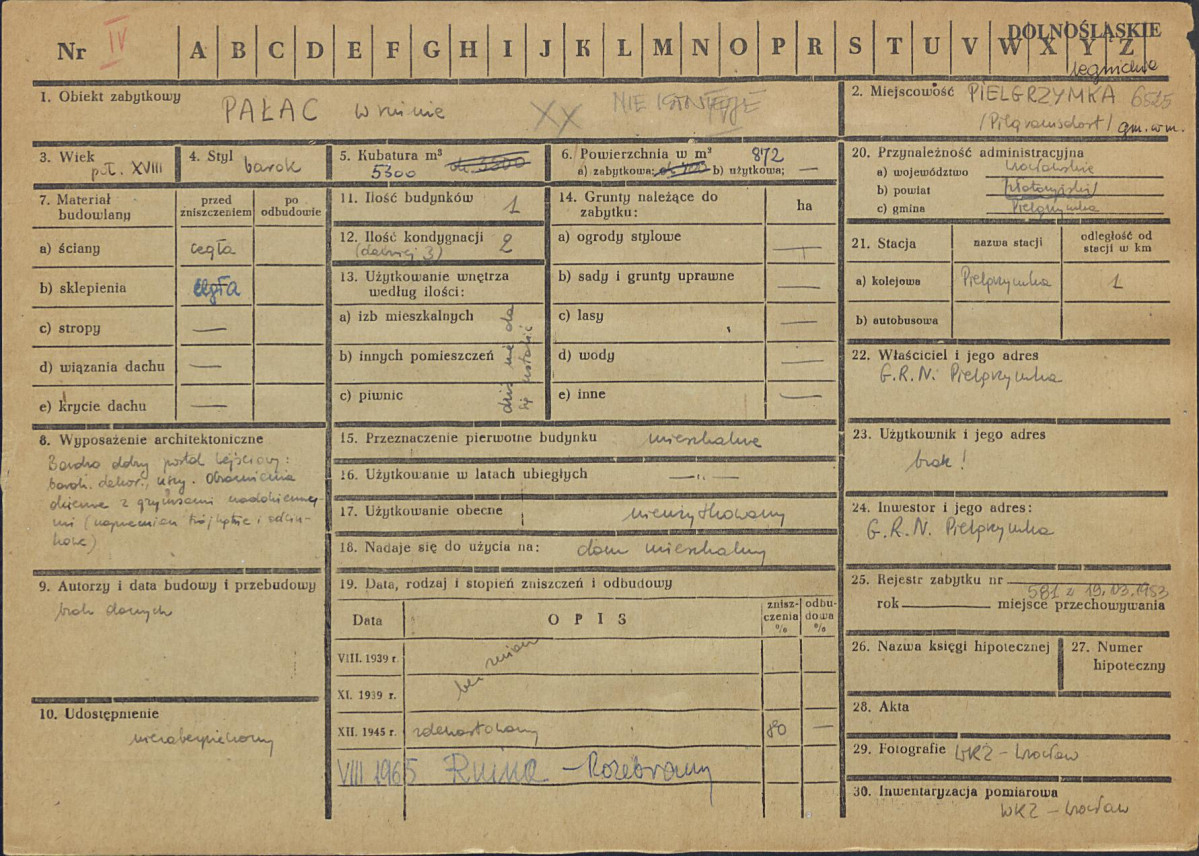 Nr IV A B C D E F G H I J K L M N O P R S T U V W X Y Z
DOLNOŚLĄSKIE
legnickie
1. Obiekt zabytkowy
PAŁAC w ruinie XX NIE ISTNIEJE
2. Miejscowość PIELGRZYMKA 6525
/Pilgramsdorf/ gm. w m.
3. Wiek
poł. XVIII
4. Styl
barok
5. Kubatura m³
5300 ok 3500
6. Powierzchnia w m² 872
a) zabytkowa; b) użytkowa; —
7. Materiał budowlany
przed zniszczeniem
po odbudowie
a) ściany cegła
b) sklepienia cegła
c) stropy —
d) wiązania dachu —
e) krycie dachu —
8. Wyposażenie architektoniczne
Bardzo dobry portal wejściowy:
barok. dekor., uszy. Obramienia
okienne z gzymsami nadokienny-
mi (naprzemian trójkątne i odcin-
kowe)
9. Autorzy i data budowy i przebudowy
brak danych
10. Udostępnienie
niezabezpieczony
11. Ilość budynków 1
12. Ilość kondygnacji 2
(dawniej 3)
13. Użytkowanie wnętrza
według ilości:
a) izb mieszkalnych
b) innych pomieszczeń
c) piwnic
dziś nie da
się ustalić
14. Grunty należące do
zabytku:
ha
a) ogrody stylowe —
b) sady i grunty uprawne —
c) lasy —
d) wody —
e) inne —
15. Przeznaczenie pierwotne budynku mieszkalne
16. Użytkowanie w latach ubiegłych —"—
17. Użytkowanie obecne nieużytkowany
18. Nadaje się do użycia na: dom mieszkalny
19. Data, rodzaj i stopień zniszczeń i odbudowy
Data
O P I S
znisz-
czenia
%
odbu-
dowa
%
VIII. 1939 r.
bez zmian
XI. 1939 r.
XII. 1945 r. zdewastowany 80 —
VIII 1965 Ruina - Rozebrany
20. Przynależność administracyjna
a) województwo wrocławskie
b) powiat złotoryjski
c) gmina Pielgrzymka
21. Stacja
nazwa stacji
odległość od
stacji w km
a) kolejowa Pielgrzymka 1
b) autobusowa
22. Właściciel i jego adres
G.R.N. Pielgrzymka
23. Użytkownik i jego adres
brak!
24. Inwestor i jego adres:
G.R.N. Pielgrzymka
25. Rejestr zabytku nr
581 z 19.03.1953
rok miejsce przechowywania
26. Nazwa księgi hipotecznej
27. Numer
hipoteczny
28. Akta
29. Fotografie WKZ - Wrocław
30. Inwentaryzacja pomiarowa
WKZ - Wrocław